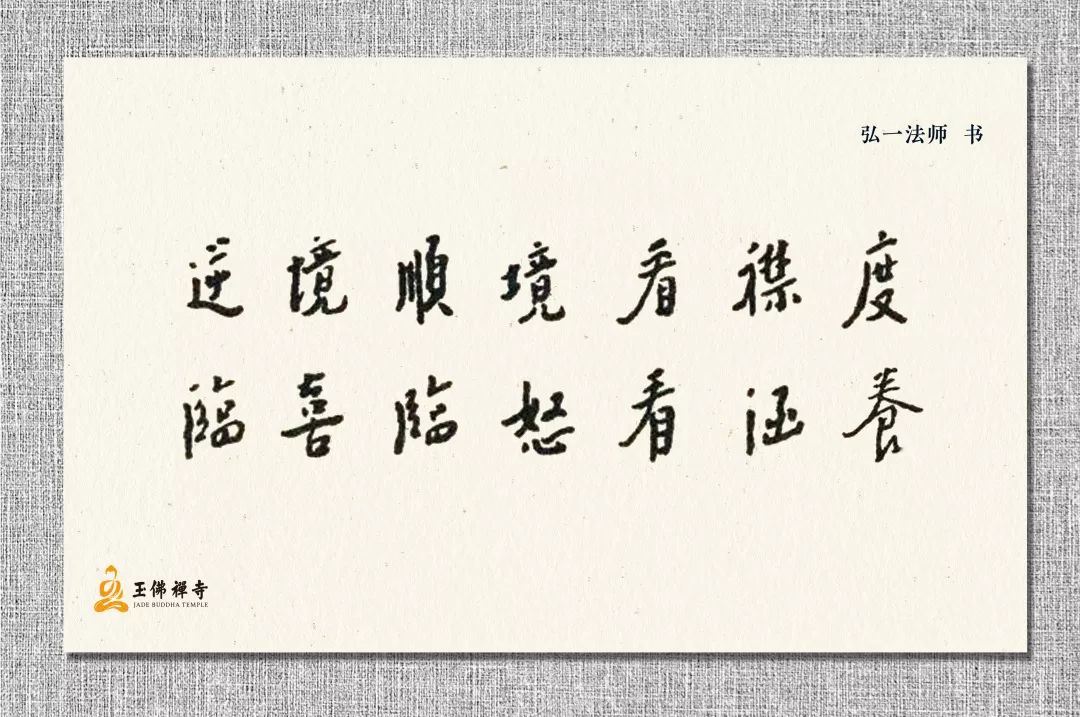 弘一法师 书
逆境順境看襟度
臨喜臨怒看涵養
玉佛禅寺
JADE BUDDHA TEMPLE